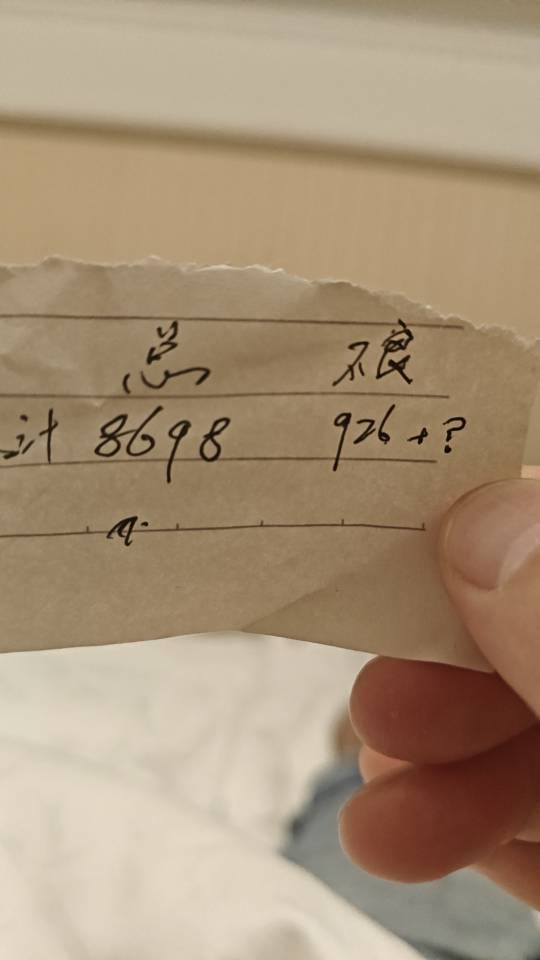 总 不良
计 8698 926+?